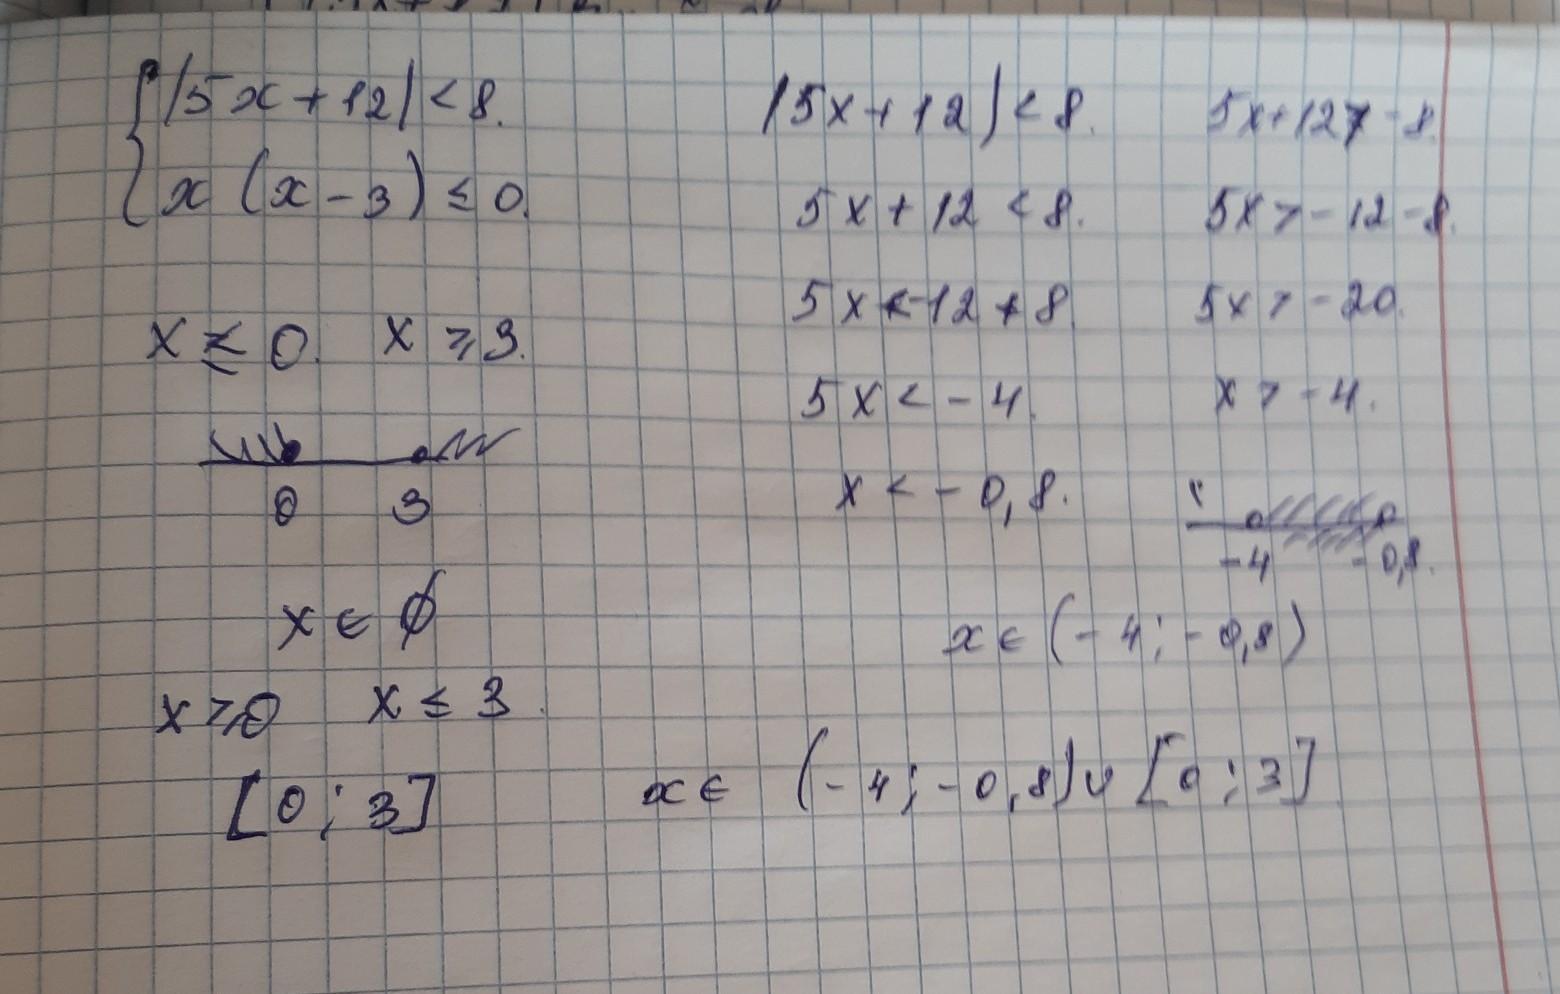 {|5x+12|<8.
x(x-3)≤0.
x≤0. x⩾3.
0 3
x∈∅
x⩾0 x≤3.
[0;3]
|5x+12|<8.
5x+12<8.
5x<-12+8
5x<-4.
x<-0,8.
5x+12>-8.
5x>-12-8.
5x>-20.
x>-4.
-4 -0,8.
x∈(-4;-0,8)
x∈ (-4;-0,8)∪[0;3]